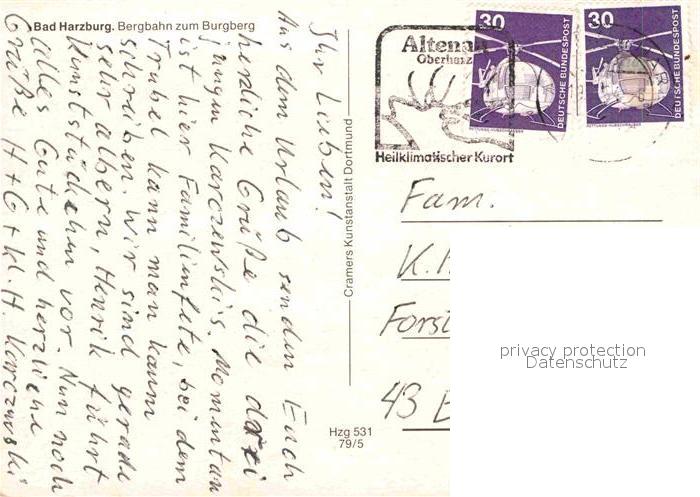 Bad Harzburg. Bergbahn zum Burgberg
Ihr Lieben!
Aus dem Urlaub senden Euch
herzliche Grüße die drei
jungen Karczewski's. Momentan
ist hier Familienfete, bei dem
Trubel kann man kaum
schreiben. Wir sind gerade
sehr albern, Henrik führt
Kunststückchen vor. Nun noch
alles Gute und herzliche
Grüße H + G + kl. H. Karczewski
Cramers Kunstanstalt Dortmund
Hzg 531
79/5
Altenau
Oberharz
Heilklimatischer Kurort
30
DEUTSCHE BUNDESPOST
30
DEUTSCHE BUNDESPOST
Fam.
K.
Forst
43
privacy protection
Datenschutz